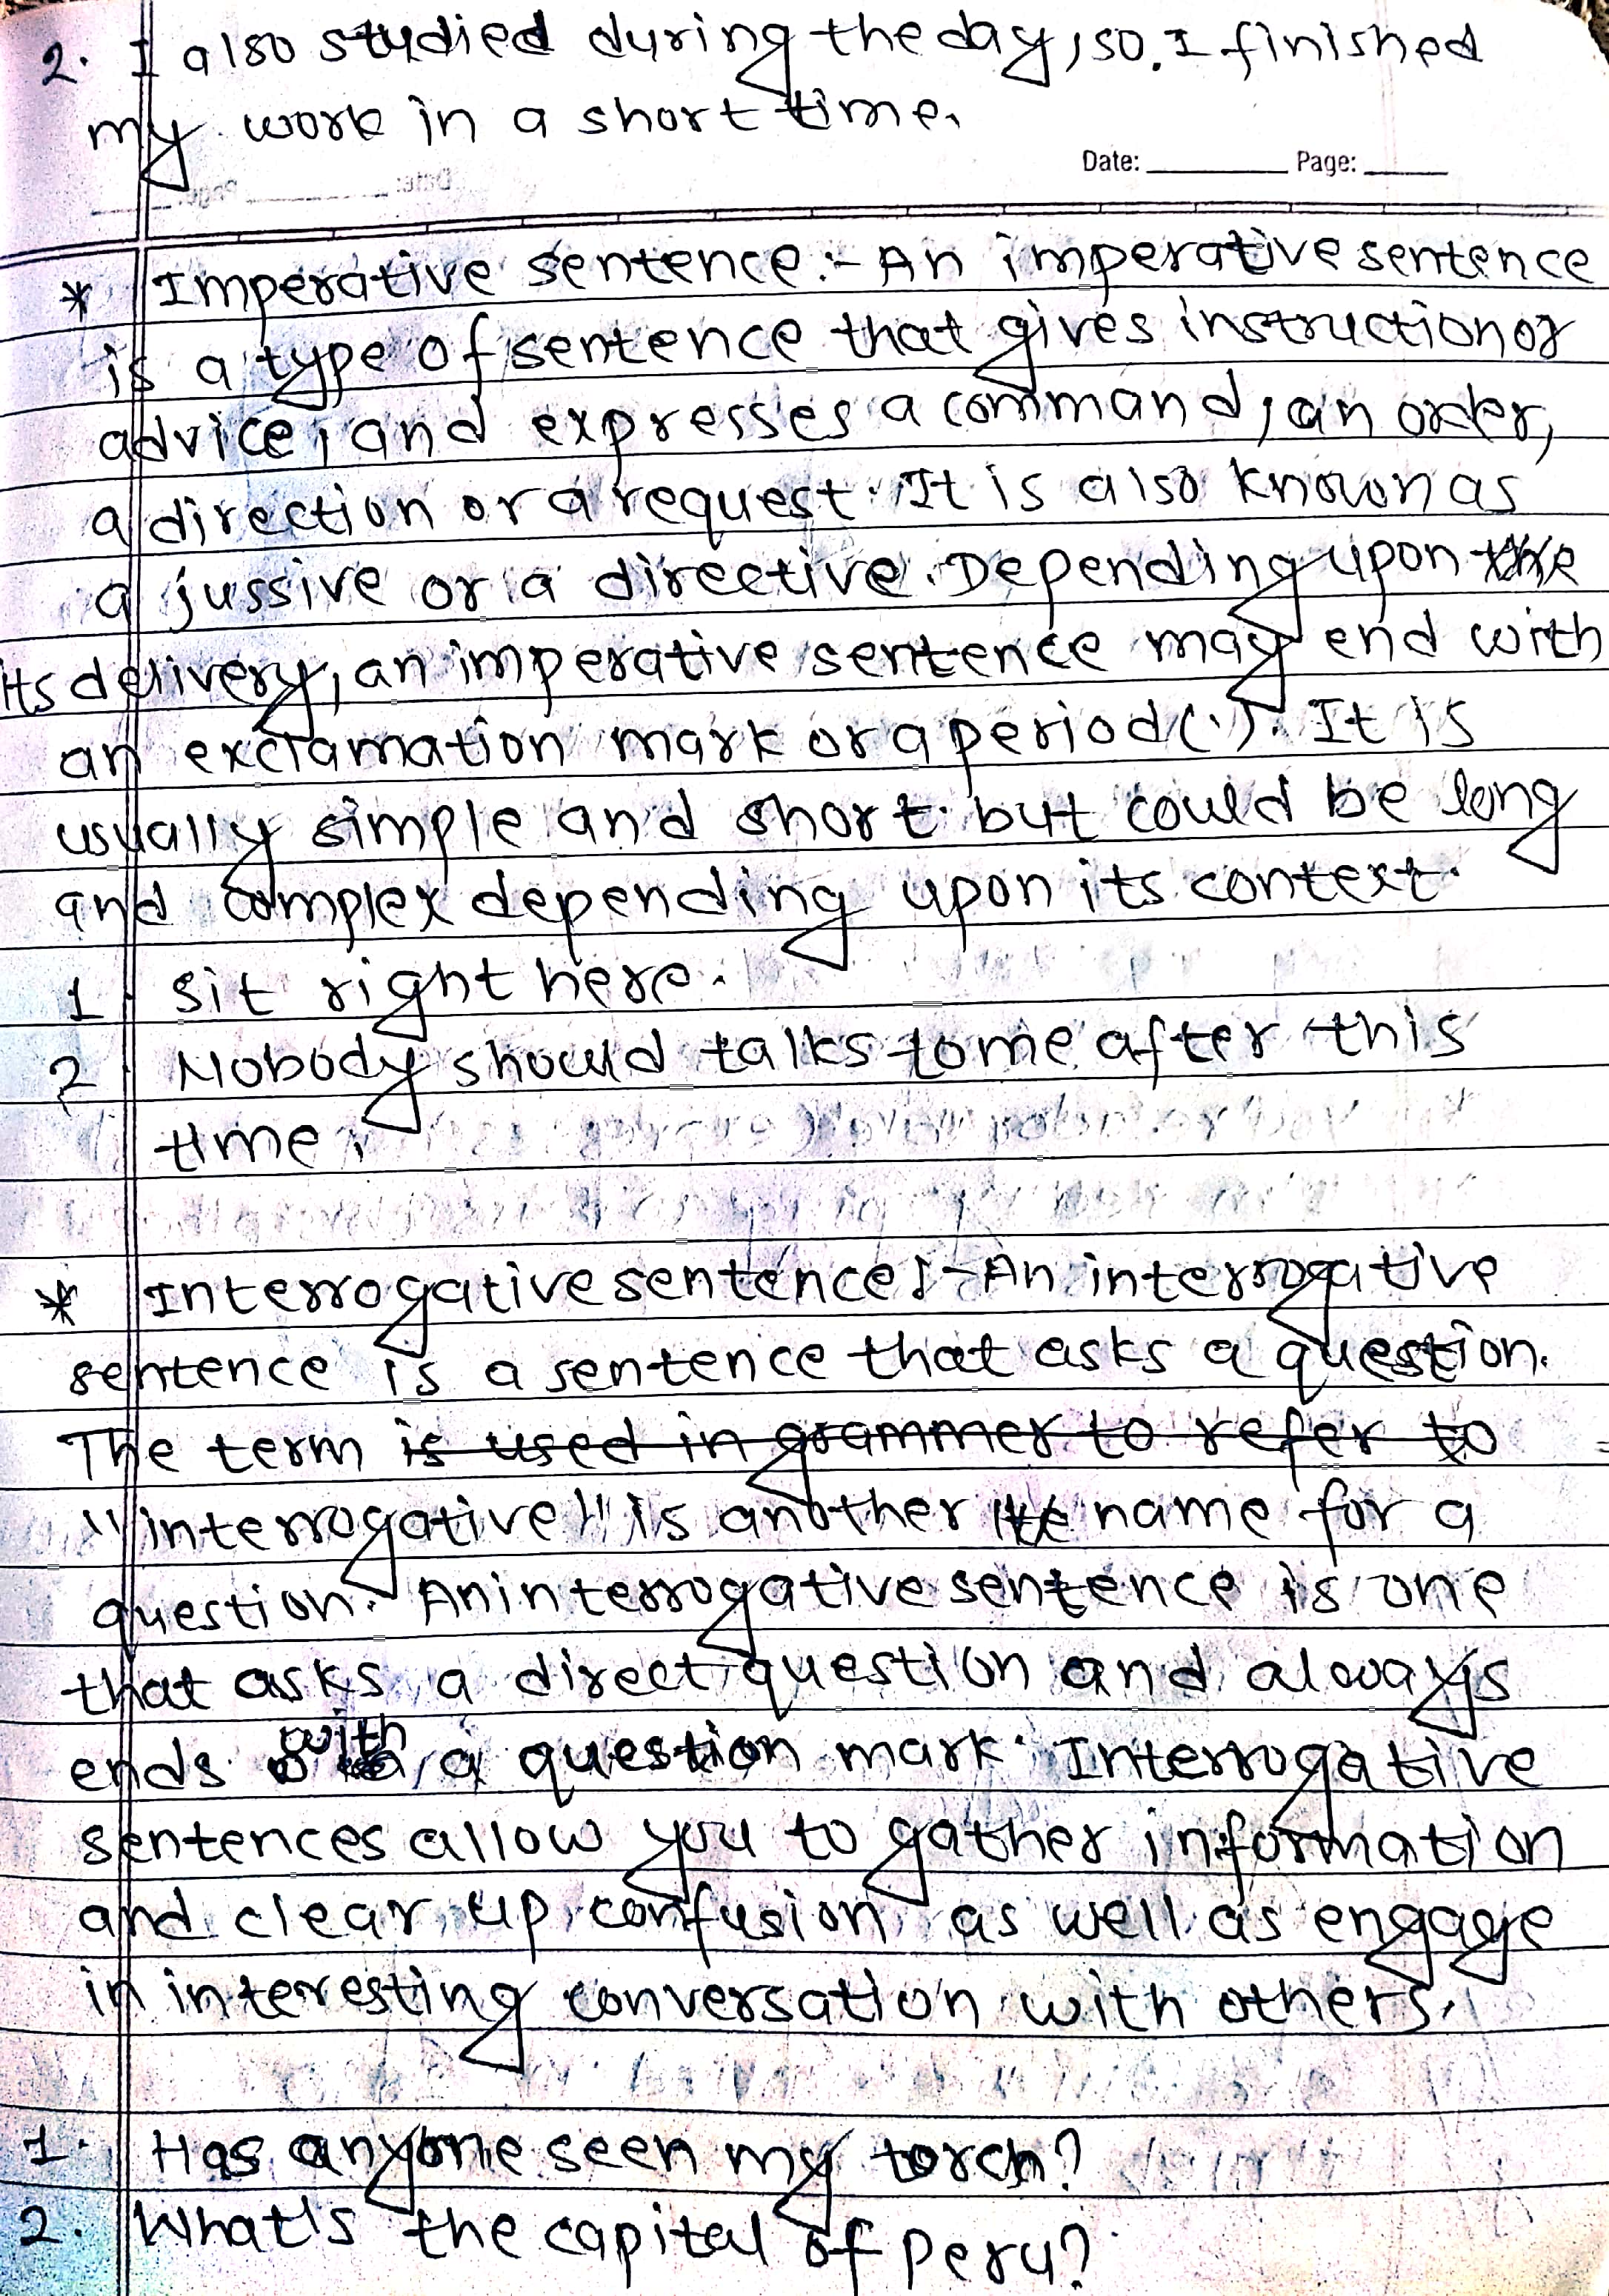 2. I also studied during the day, so. I finished
my work in a short time.
Date: Page:
* Imperative sentence :- An imperative sentence
is a type of sentence that gives instruction or
advice, and expresses a command, an order,
a direction or a request. It is also known as
a jussive or a directive. Depending upon
its delivery, an imperative sentence may end with
an exclamation mark or a period (.). It is
usually simple and short but could be long
and complex depending upon its context.
1 sit right here.
2 Nobody should talks to me after this
time.
* Interrogative sentence :- An interrogative
sentence is a sentence that asks a question.
The term is used in grammer to refer to
"interrogative" is another name for a
question. An interrogative sentence is one
that asks a direct question and always
ends with a question mark. Interrogative
sentences allow you to gather information
and clear up confusion as well as engage
in interesting conversation with others.
1. Has anyone seen my torch?
2. What's the capital of Peru?